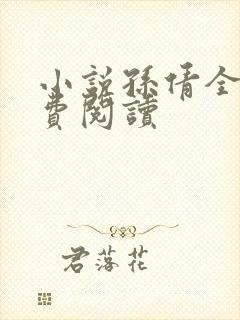 小說孫倩全
費閱讀
君落花